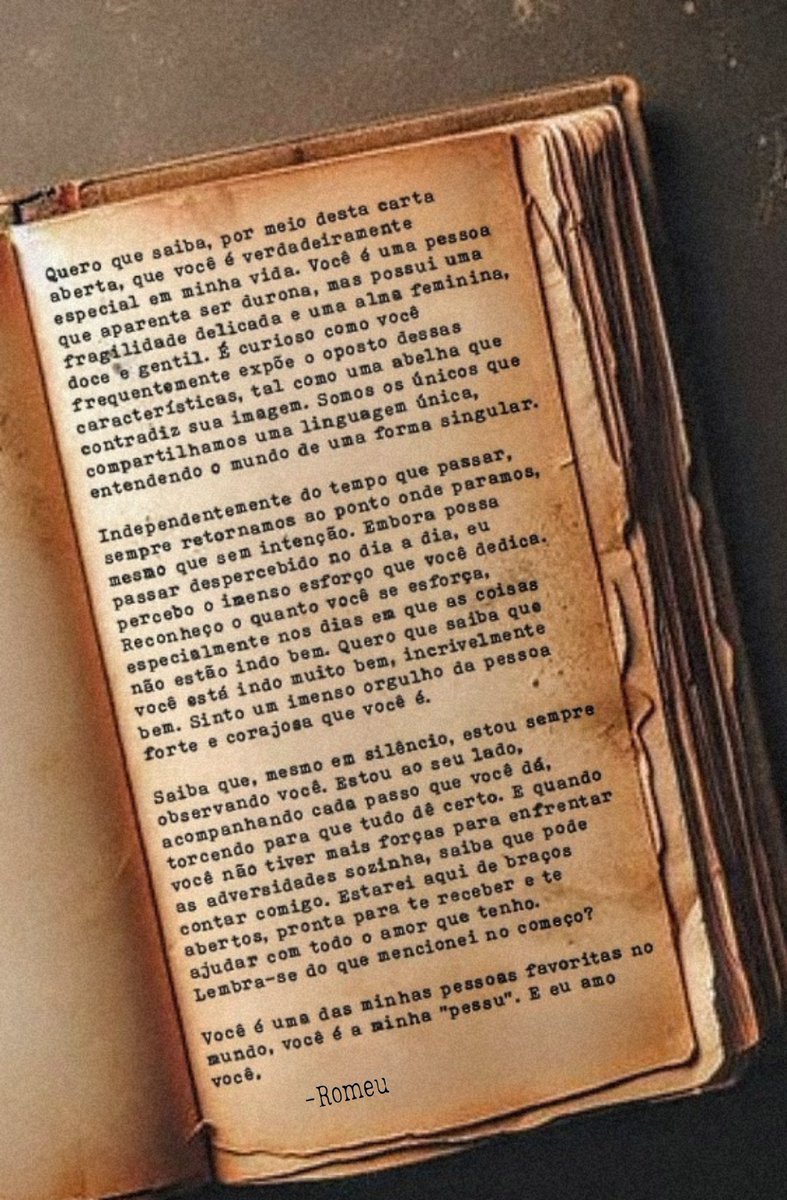 Quero que saiba, por meio desta carta
aberta, que você é verdadeiramente
especial em minha vida. Você é uma pessoa
que aparenta ser durona, mas possui uma
fragilidade delicada e uma alma feminina,
doce e gentil. É curioso como você
frequentemente expõe o oposto dessas
características, tal como uma abelha que
contradiz sua imagem. Somos os únicos que
compartilhamos uma linguagem única,
entendendo o mundo de uma forma singular.
Independentemente do tempo que passar,
sempre retornamos ao ponto onde paramos,
mesmo que sem intenção. Embora possa
passar despercebido no dia a dia, eu
percebo o imenso esforço que você dedica.
Reconheço o quanto você se esforça,
especialmente nos dias em que as coisas
não estão indo bem. Quero que saiba que
você está indo muito bem, incrivelmente
bem. Sinto um imenso orgulho da pessoa
forte e corajosa que você é.
Saiba que, mesmo em silêncio, estou sempre
observando você. Estou ao seu lado,
acompanhando cada passo que você dá,
torcendo para que tudo dê certo. E quando
você não tiver mais forças para enfrentar
as adversidades sozinha, saiba que pode
contar comigo. Estarei aqui de braços
abertos, pronta para te receber e te
ajudar com todo o amor que tenho.
Lembra-se do que mencionei no começo?
Você é uma das minhas pessoas favoritas no
mundo, você é a minha "pessu". E eu amo
você.
-Romeu